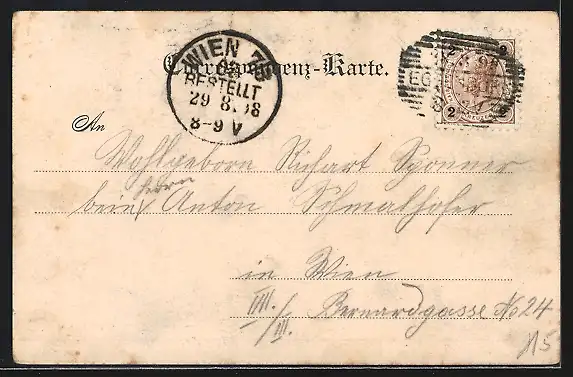 Correspondenz-Karte.
WIEN 7/3
BESTELLT
29 8.98
8-9 V
2 2
2
An
Wohlgeborn Richart Sponner
beim Herrn Anton Schmalhofer
in Wien
VII./III. Bernardgasse No 24